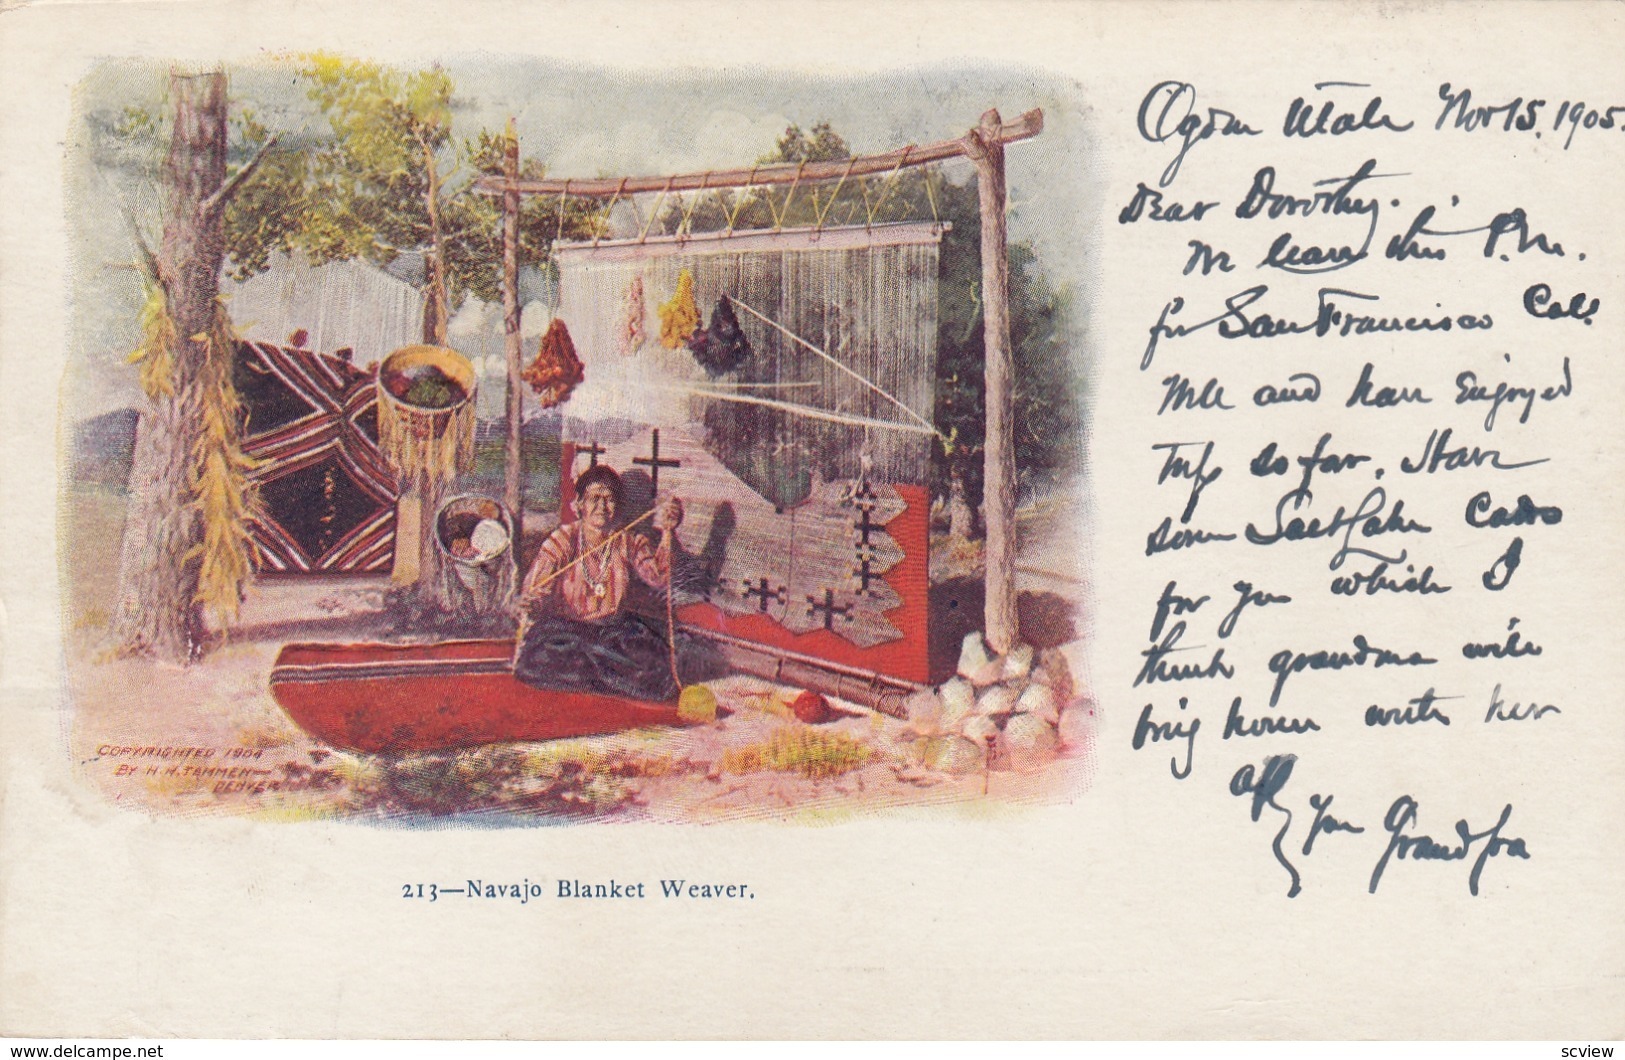 Ogden Utah Nov 15. 1905.
Dear Dorothy.
We leave this P.M.
for San Francisco Cal.
Well and have Enjoyed
Trip so far. Have
some Salt Lake Cards
for you which I
think grandma will
bring home with her
aff
your Grandpa
COPYRIGHTED 1904
BY H. H. TAMMEN
DENVER
213—Navajo Blanket Weaver.
www.delcampe.net
scview